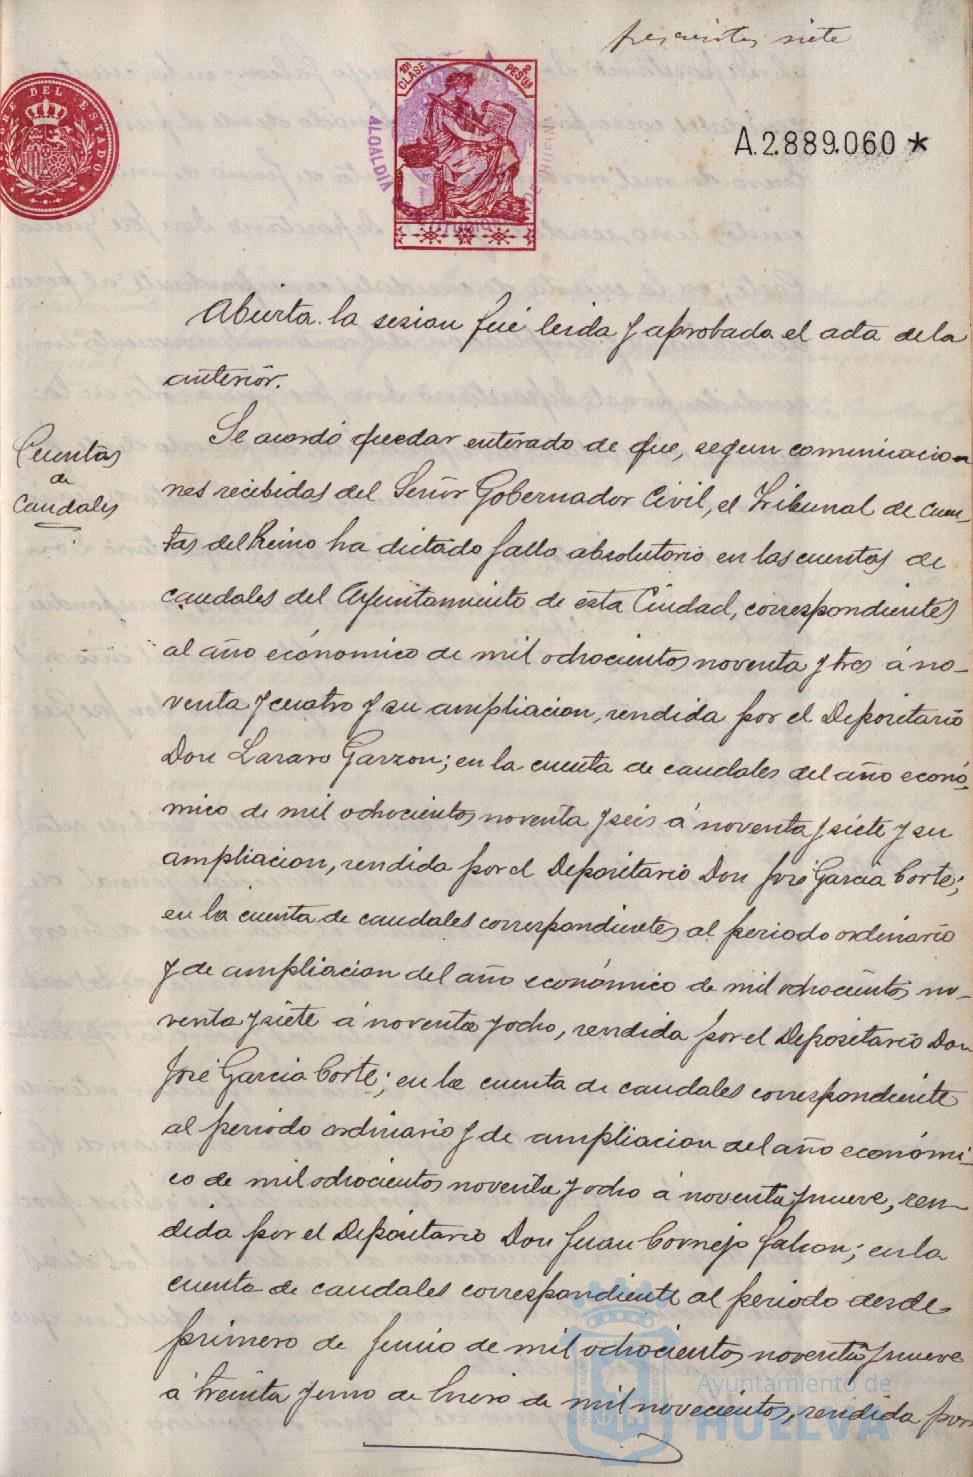 siete
TIMBRE DEL ESTADO
10ª CLASE 2 PESTAS
ALCALDIA CONSTITUCIONAL DE HUELVA
A.2.889.060 *
Abierta la sesion fué leida y aprobada el acta de la
anterior.
Cuentas
de
Caudales
Se acordó quedar enterado de que, segun comunicacio-
nes recibidas del Señor Gobernador Civil, el Tribunal de Cuen-
tas del Reino ha dictado fallo absolutorio en las cuentas de
caudales del Ayuntamiento de esta Ciudad, correspondientes
al año económico de mil ochocientos noventa y tres á no-
venta y cuatro y su ampliacion, rendida por el Depositario
Don Lazaro Garzon; en la cuenta de caudales del año econó-
mico de mil ochocientos noventa y seis á noventa y siete y su
ampliacion, rendida por el Depositario Don José Garcia Corte;
en la cuenta de caudales correspondientes al periodo ordinario
y de ampliacion del año económico de mil ochocientos no-
venta y siete á noventa y ocho, rendida por el Depositario Don
José Garcia Corte; en la cuenta de caudales correspondiente
al periodo ordinario y de ampliacion del año económi-
co de mil ochocientos noventa y ocho á noventa y nueve, ren-
dida por el Depositario Don Juan Cornejo Falcon; en la
cuenta de caudales correspondiente al periodo desde
primero de Junio de mil ochocientos noventa y nueve
á treinta y uno de Enero de mil novecientos, rendida por
Ayuntamiento de
HUELVA